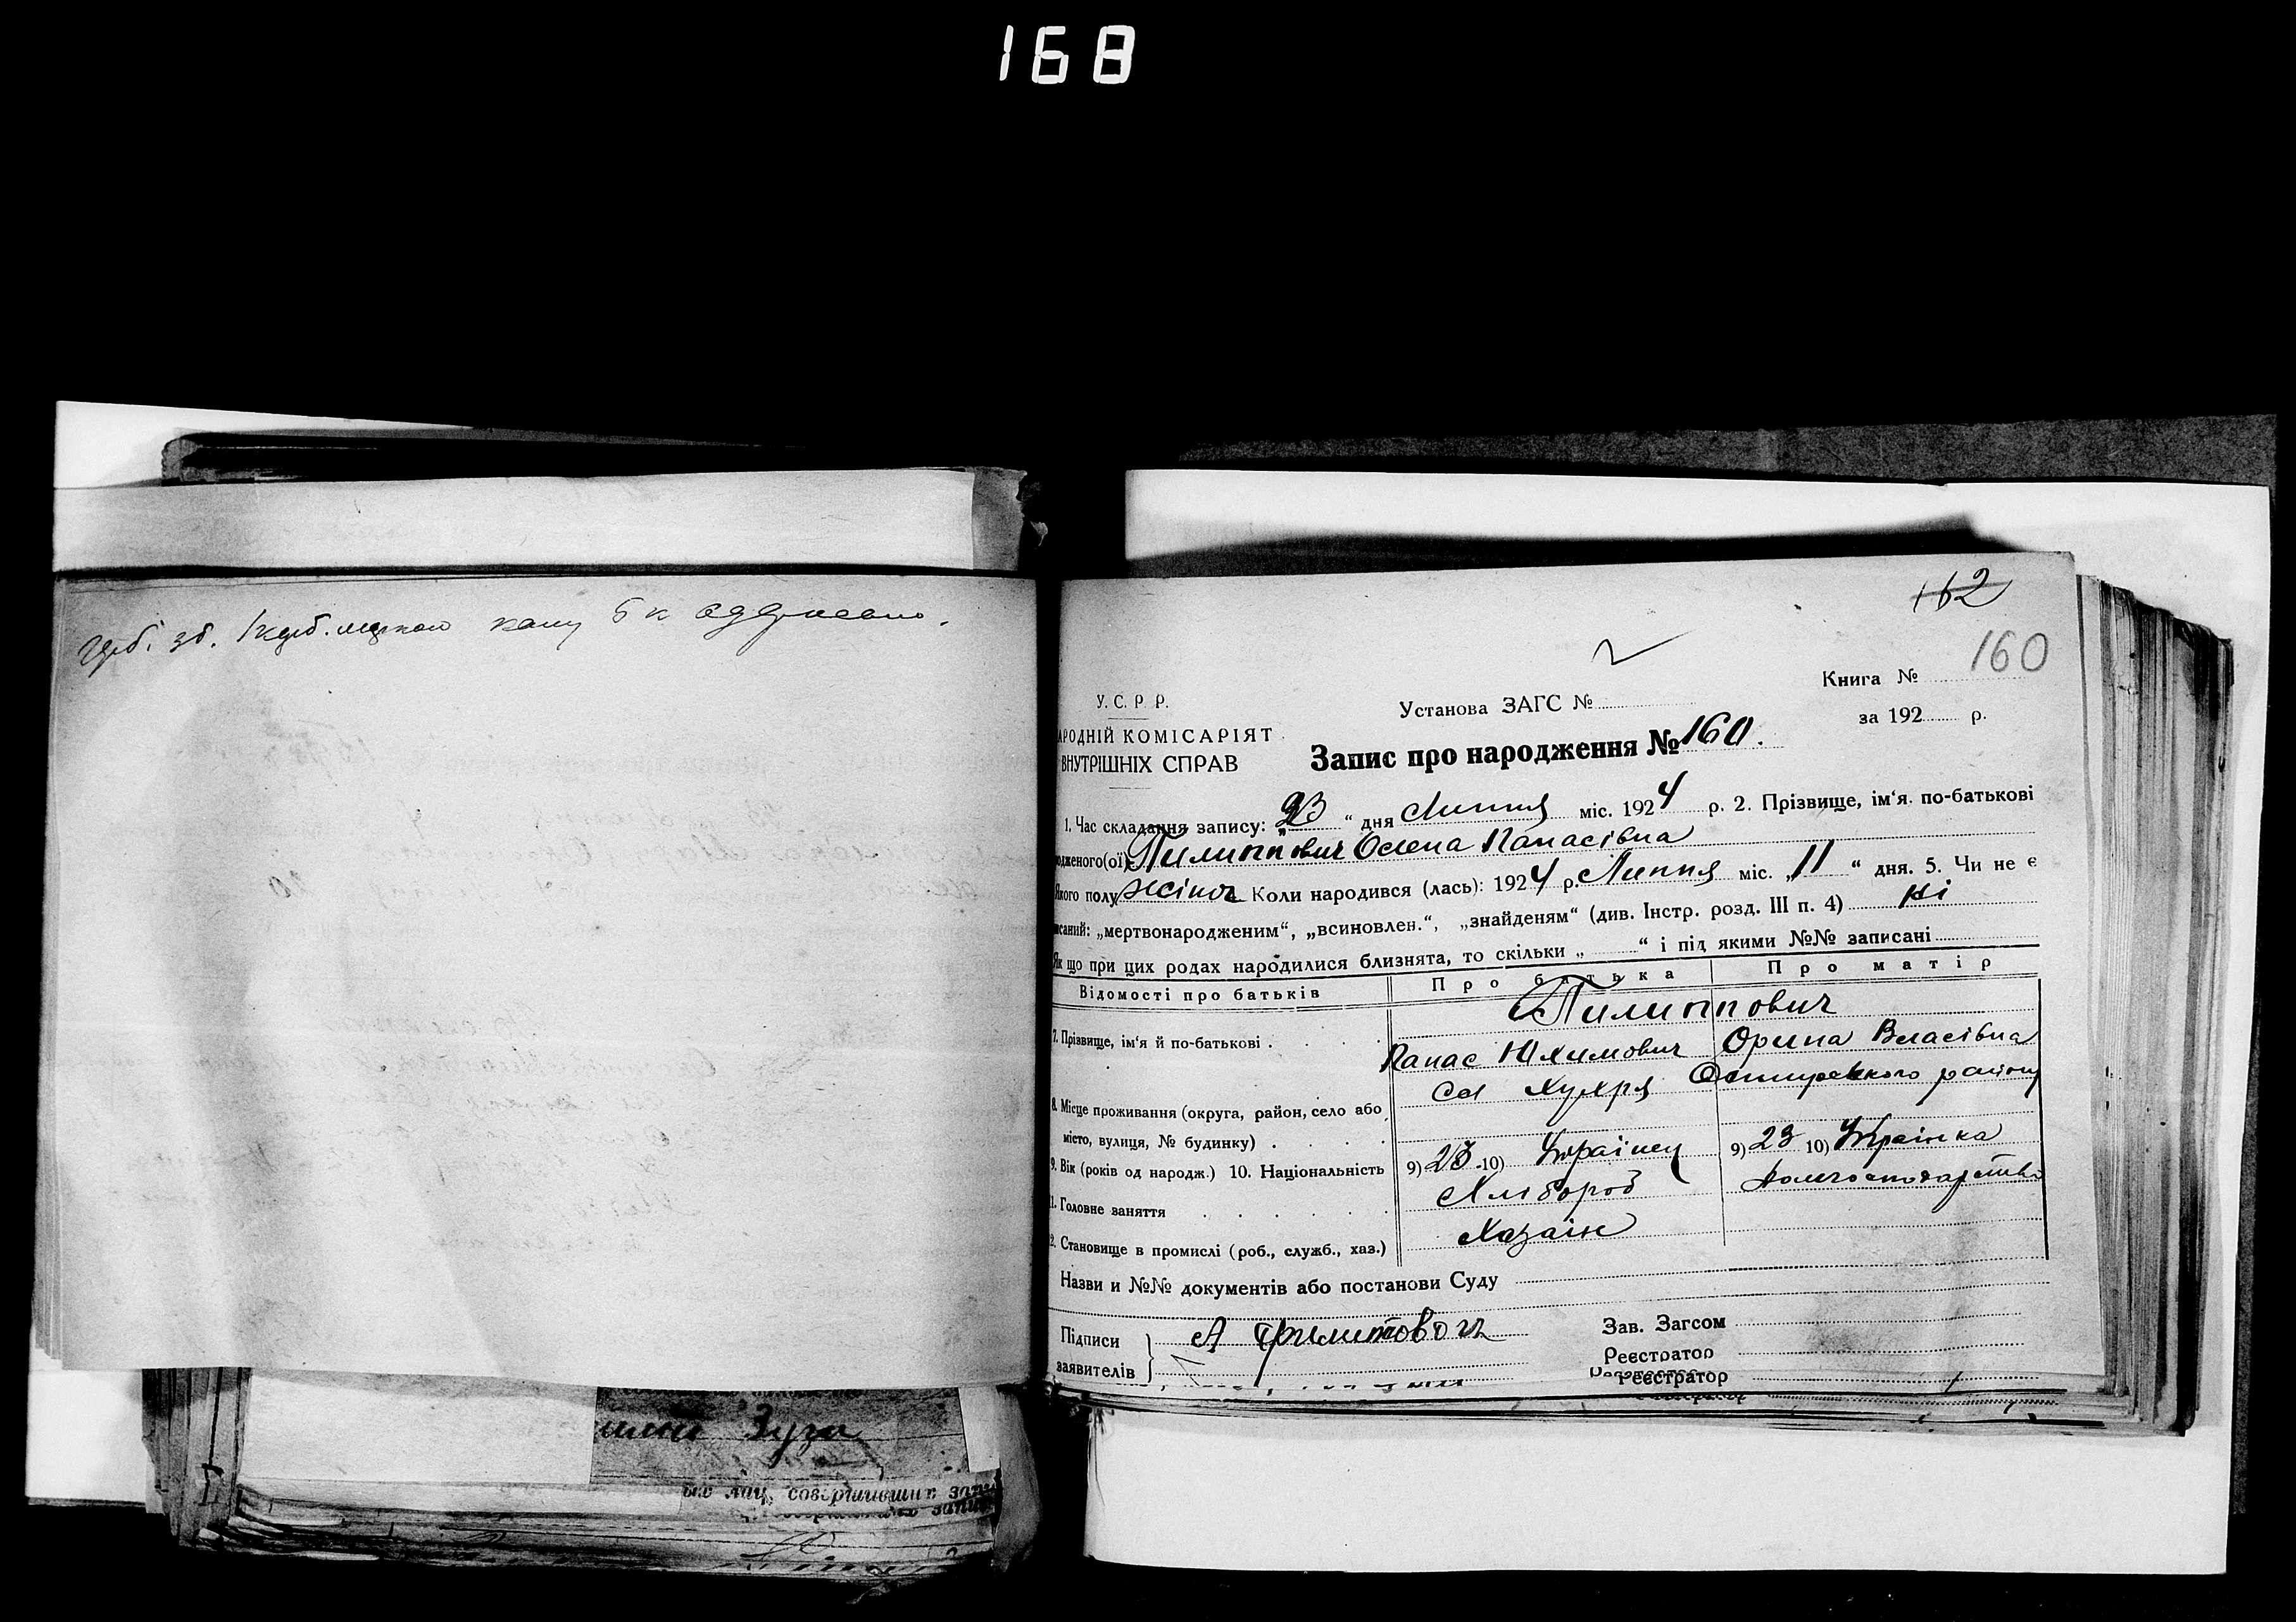 168
162
160
Книга №
У. С. Р. Р.
Установа ЗАГС №
за 192 р.
АРОДНІЙ КОМІСАРІЯТ
ВНУТРІШНІХ СПРАВ
Запис про народження № 160.
1. Час складання запису: „23“ дня Липня міс. 1924 р. 2. Прізвище, ім‘я. по-батькові
одженого(ої) Пилиппович Олена Панасівна
Якого полу жіноч Коли народився (лась): 1924 р. Липня міс. „11“ дня. 5. Чи не є
исаний: „мертвонародженим“, „всиновлен.“, „знайденям“ (див. Інстр. розд. III п. 4) ні
Як що при цих родах народилися близнята, то скільки „ “ і під якими №№ записані
Відомості про батьків Про батька Про матір
Пилиппович
7. Прізвище, ім‘я й по-батькові . Панас Юхимович Орина Власівна
Сел Хухря Охтирського району
8. Місце проживання (округа, район, село або
місто, вулиця, № будинку) .
9. Вік (років од народж.) 10. Національність 9) 23 10) Українец 9) 23 10) Українка
11. Головне заняття Хлібороб Домгосподарство
2. Становище в промислі (роб., служб., хаз.) Хазаін
Назви и №№ документів або постанови Суду
Підписи А Филипович
заявителів
Зав. Загсом
Реєстратор
Реєстратор
Зуга
лиц, совершивших запи